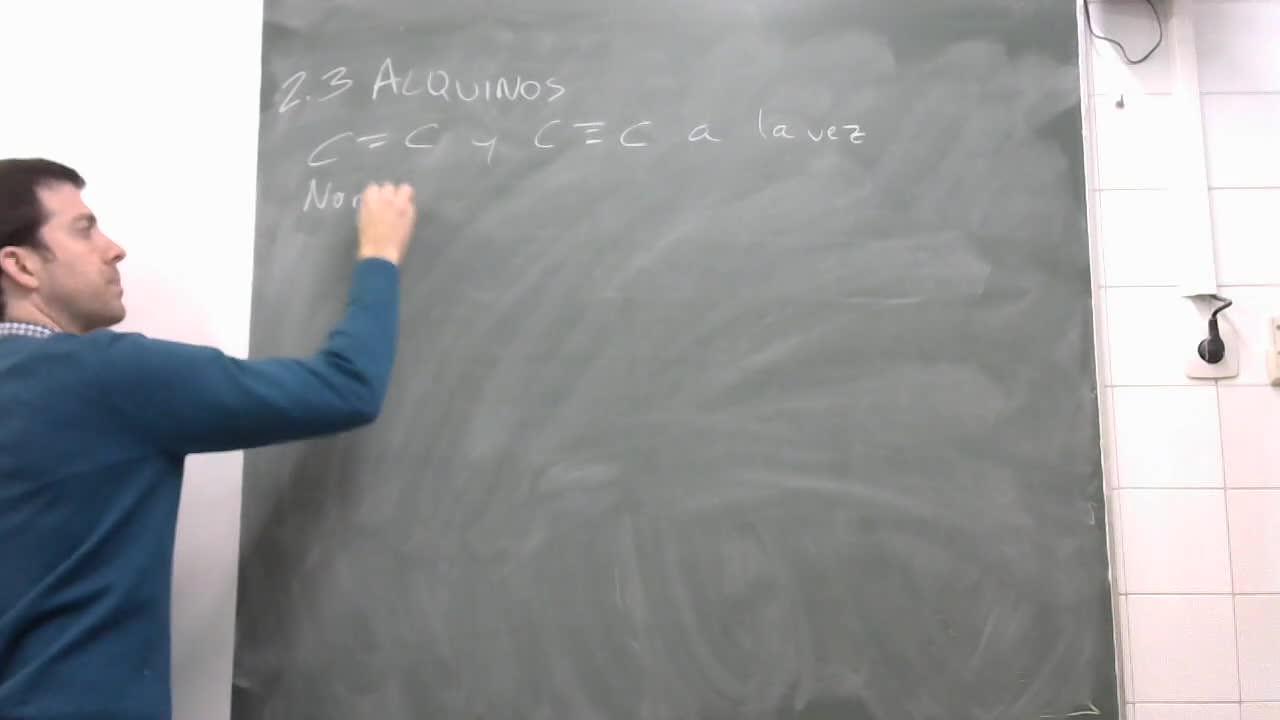 2.3 ALQUINOS
C=C y C≡C a la vez
Nom